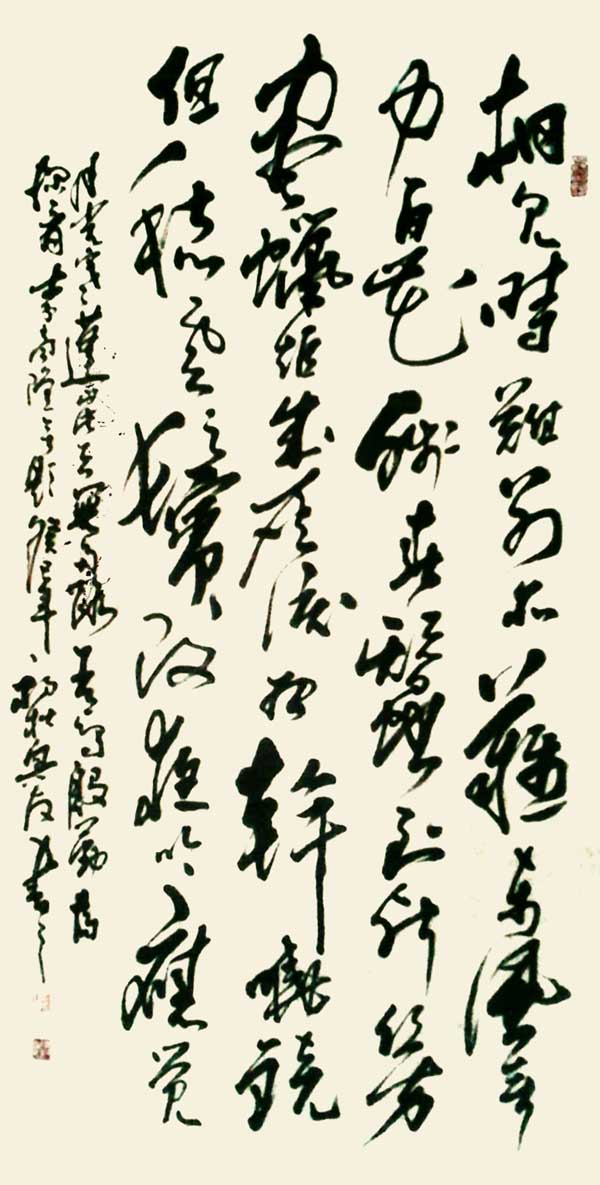 相見時難別亦難東風無
力百花殘春蠶到死絲方
盡蠟炬成灰淚始乾曉鏡
但愁雲鬢改夜吟應覺
月光寒蓬山此去無多路青鳥殷勤為
探看李商隱無題癸巳年